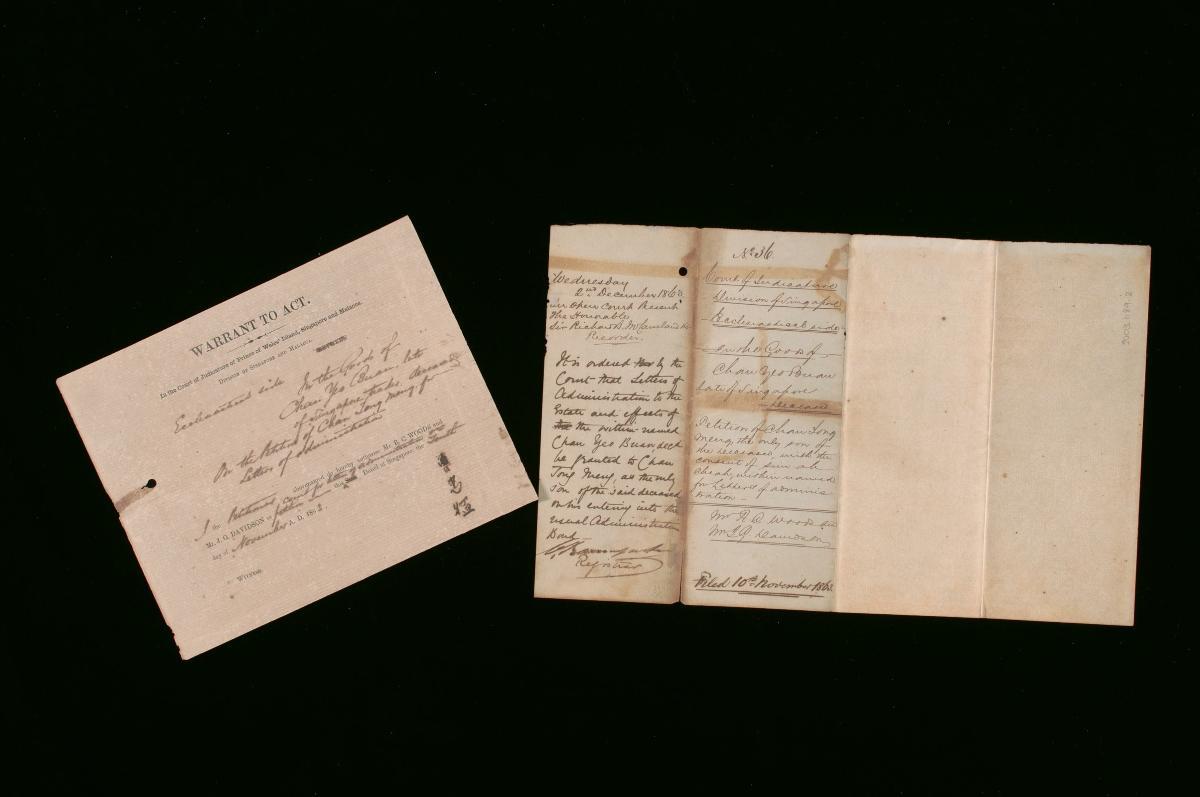 WARRANT TO ACT.
In the Court of Judicature of Prince of Wales' Island, Singapore and Malacca.
DIVISION OF SINGAPORE AND MALACCA.
Ecclesiastical side In the Goods of
Chan Yeo Buan late
of Singapore trader deceased
On the Petition of Chan Tong Meng for
Letters of administration
I the Petitioner
do hereby authorize Mr. R. C. WOODS and
Mr. J. G. DAVIDSON to
Dated at Singapore the Tenth
day of November A. D. 186
WITNESS
Wednesday
2nd December 1863
in Open Court Present
The Honorable
Sir Richard B. McCausland Kt
Recorder.
It is ordered by the
Court that Letters of
Administration to the
Estate and effects of
the within named
Chan Yeo Buan decd
be granted to Chan
Tong Meng, as the only
son of the said deceased
on his entering into the
usual Administration
Bond
Registrar
No. 36
Court of Judicature
Division of Singapore
Ecclesiastical side
In the Goods of
Chan Yeo Buan
late of Singapore
deceased
Petition of Chan Tong
Meng, the only son of
the deceased, with the
consent of
within named
for Letters of adminis
tration -
Mr R C Woods &
Mr J G Davidson
Filed 10th November 1863.